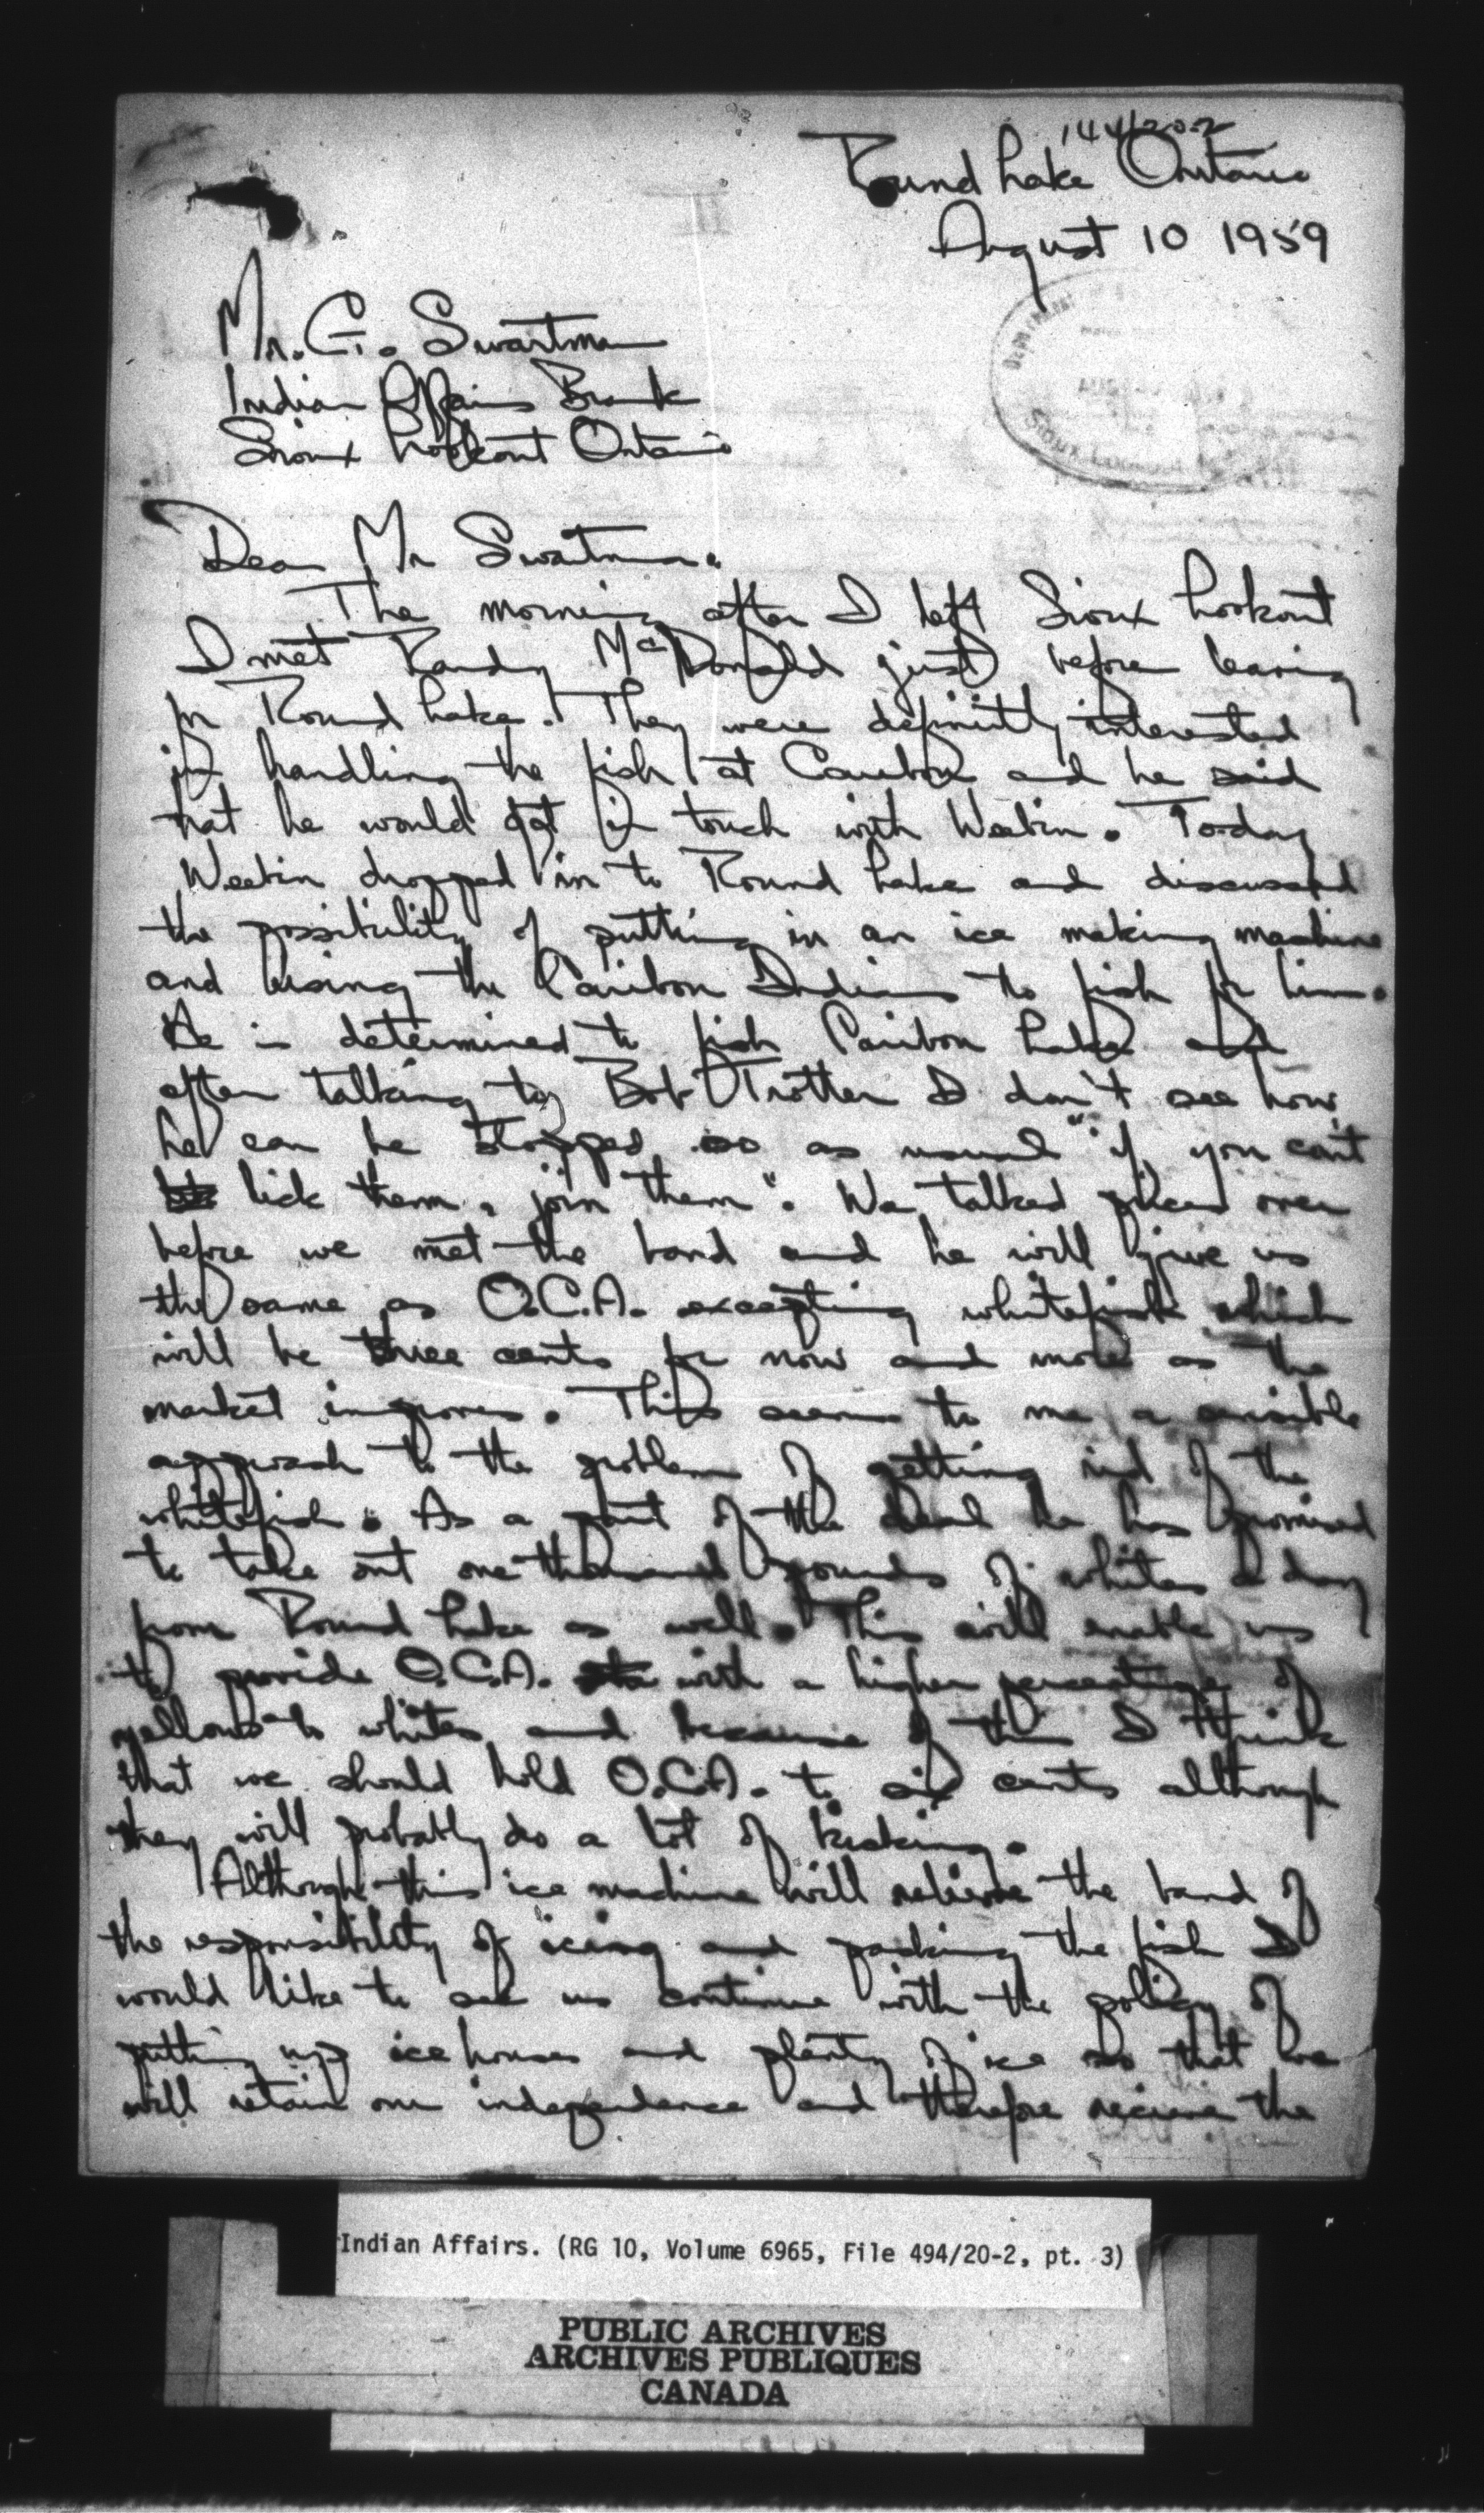 144/20-2
Round Lake Ontario
August 10 1959
Mr. G. Swartman
Indian Affairs Branch
Sioux Lookout Ontario
Department
AUG
Sioux Lookout
Dear Mr Swartman.
The morning after I left Sioux Lookout
I met Randy McDonald just before leaving
for Round Lake. They were definitly interested
in handling the fish at Caribou and he said
that he would get in touch with Weebin. Today
Weebin dropped in to Round Lake and discussed
the possibility of putting in an ice making machine
and using the Caribou Indians to fish for him.
He is determined to fish Caribou Lake and
after talking to Bob Trotter I don't see how
he can be stopped so as usual "if you can't
lick them, join them". We talked prices over
before we met the band and he will give us
the same as O.C.A. excepting whitefish which
will be three cents for now and more as the
market improves. This seems to me a sensible
approach to the problem of getting rid of the
whitefish. As a part of the deal he has promised
to take out one thousand pounds of whites a day
from Round Lake as well. This will enable us
to provide O.C.A. with a higher percentage of
yellows to whites and because of this I think
that we should hold O.C.A. to six cents although
they will probably do a lot of kicking.
Although this ice machine will relieve the band of
the responsibility of icing and packing the fish I
would like to see us continue with the policy of
putting up ice houses and plenty of ice so that we
will retain our independence and therefore recieve the
Indian Affairs. (RG 10, Volume 6965, File 494/20-2, pt. 3)
PUBLIC ARCHIVES
ARCHIVES PUBLIQUES
CANADA